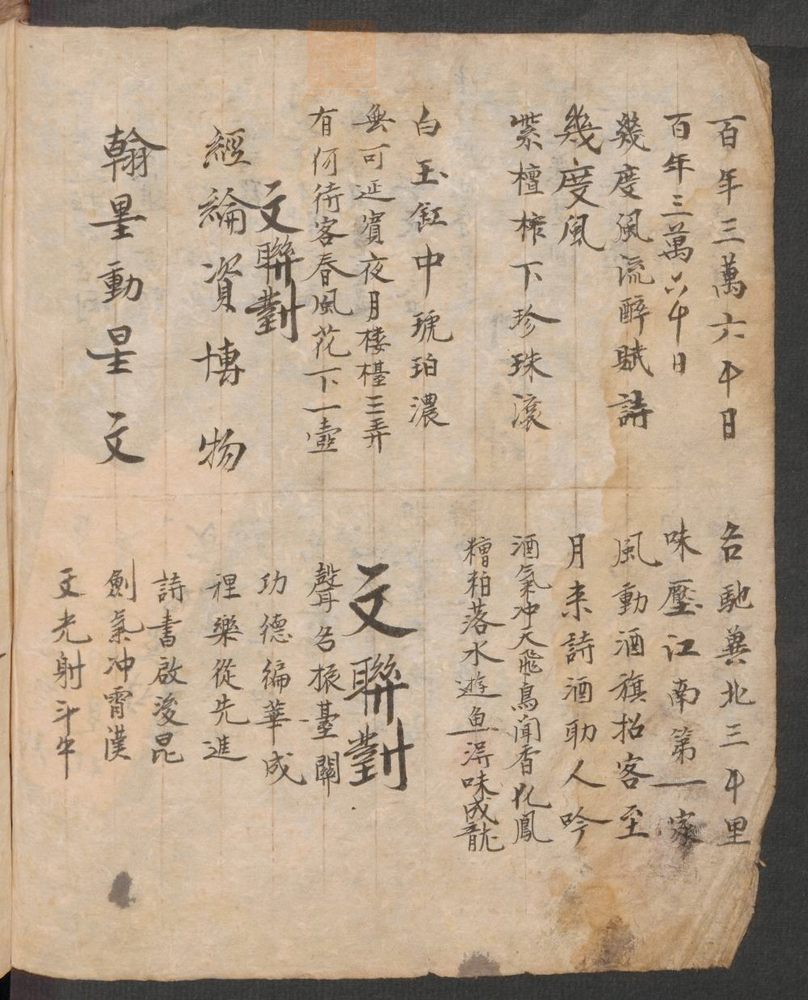 百年三萬六千日
百年三萬六千日
幾度風流醉賦詩
幾度風
紫檀榨下珍珠滾
白玉缸中琥珀濃
無可延賓夜月樓檯三弄
有何待客春風花下一壺
文聯對
經綸資博物
翰墨動星文
名馳冀北三千里
味壓江南第一家
風動酒旗招客至
月來詩酒助人吟
酒氣冲天飛鳥聞香化鳳
糟粕落水遊魚淂味成龍
文聯對
聲名振臺閣
功德編華成
裡樂從先進
詩書啟後昆
劍氣冲霄漢
文光射斗牛